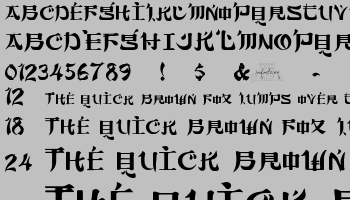 ABCDEFGHIJKLMNOPQRSTUV
ABCDEFGHIJKLMNOPQR
0123456789 ! $ & -
12 THE QUICK BROWN FOX JUMPS OVER
18 THE QUICK BROWN FOX
24 THE QUICK BROWN
THE QUICK